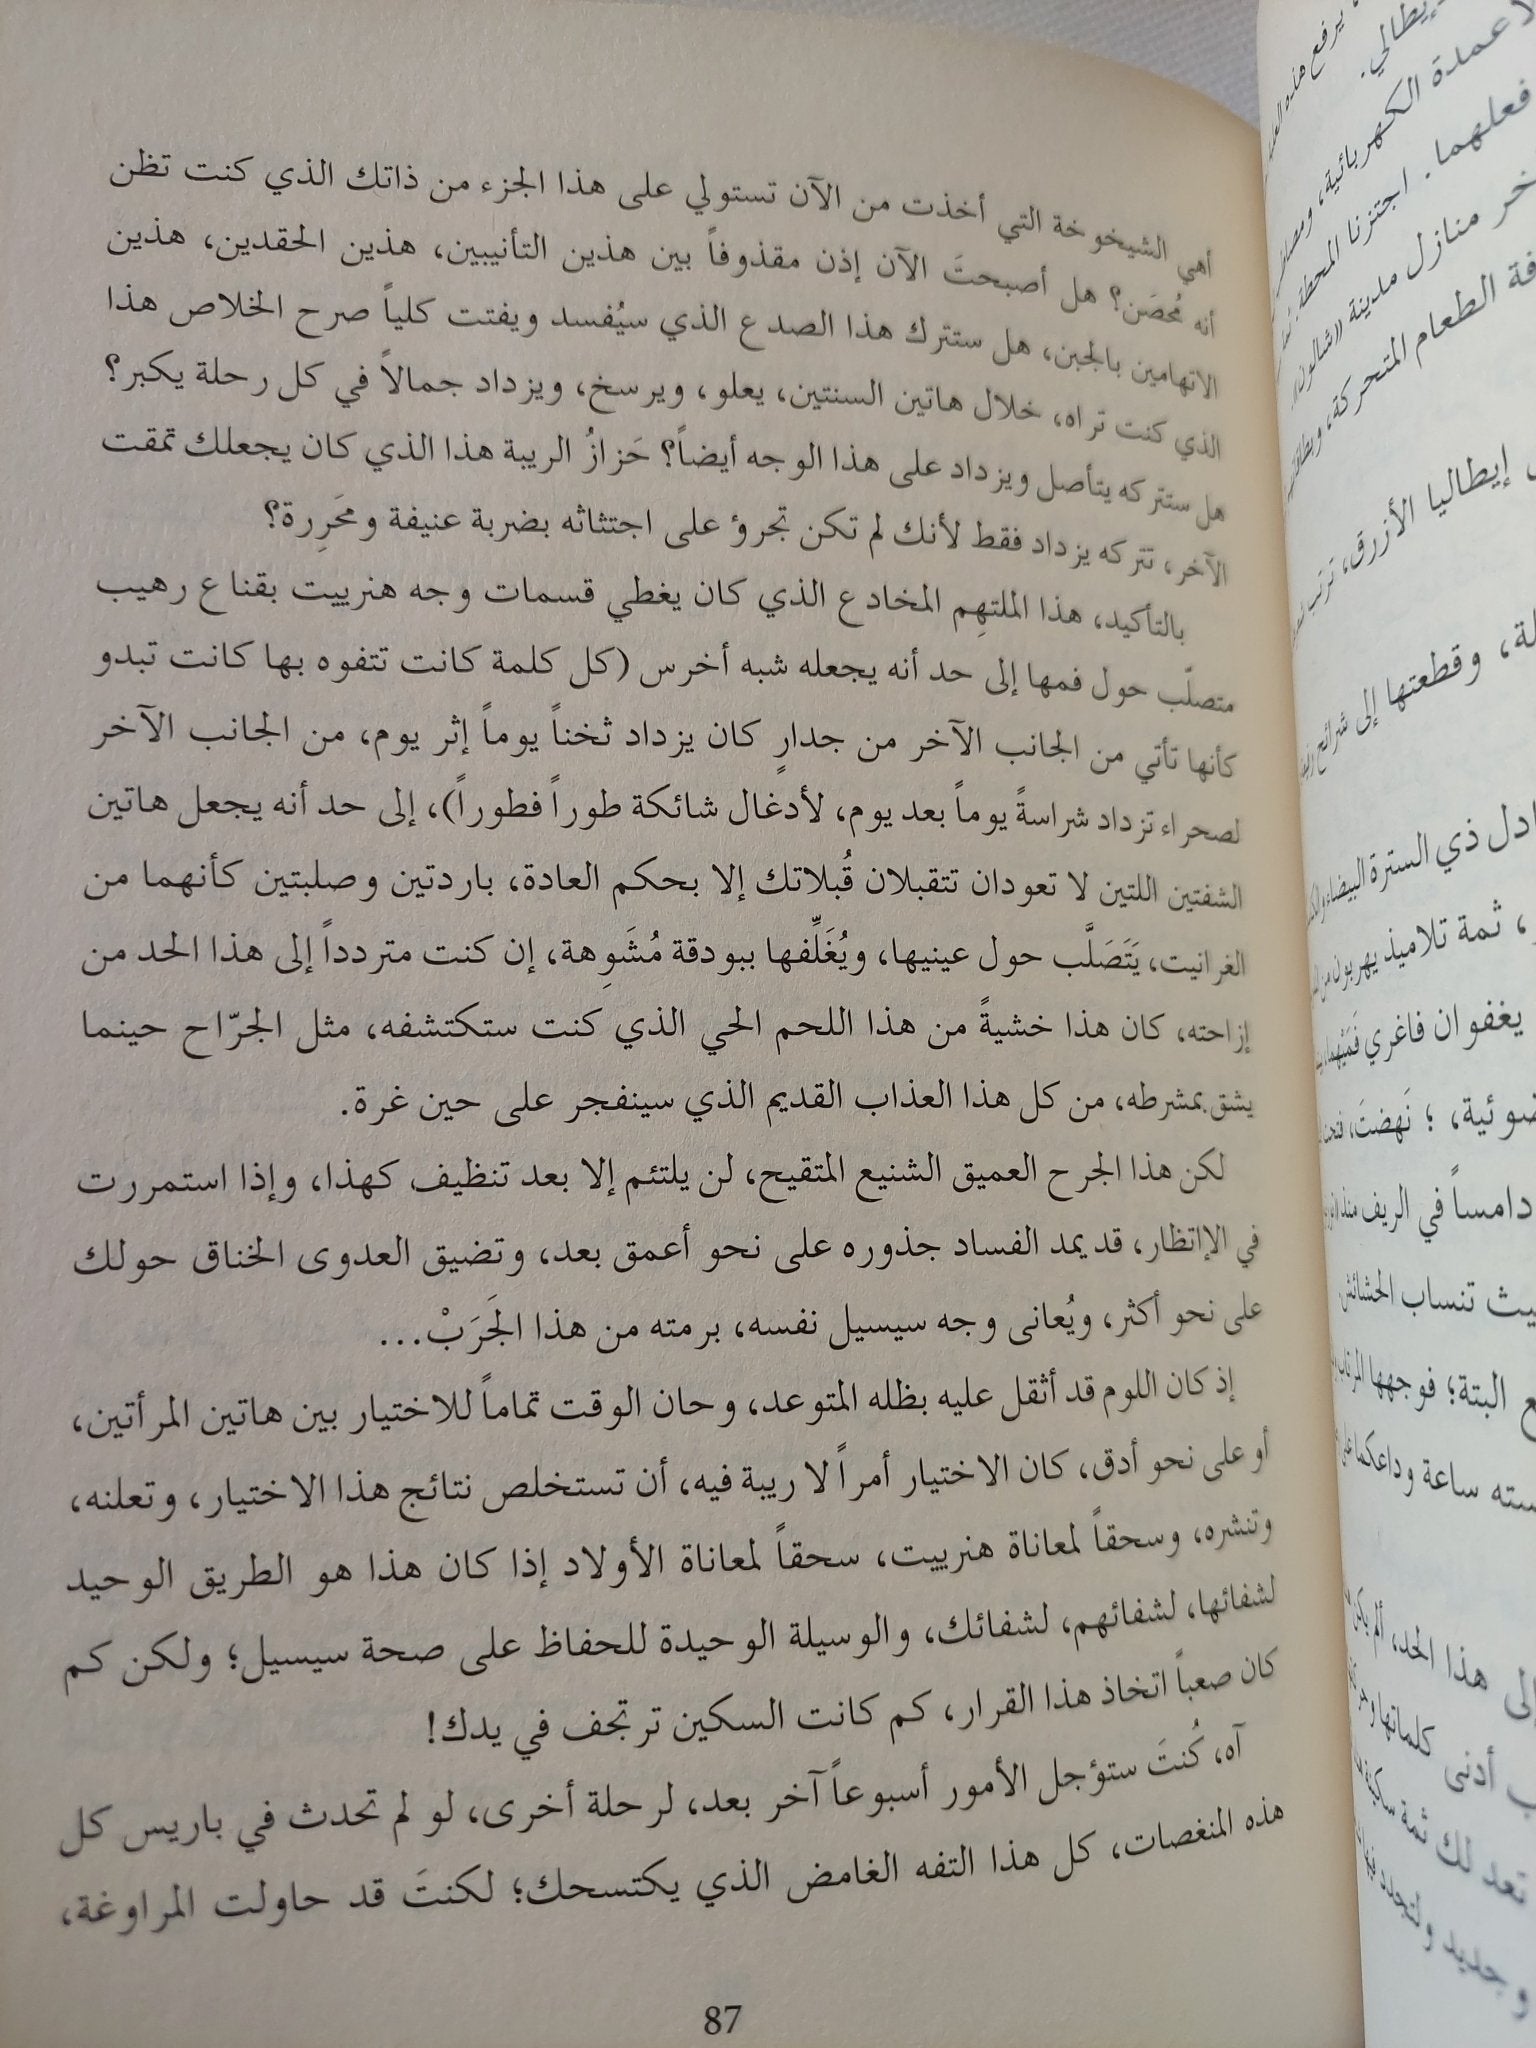 أهي الشيخوخة التي أخذت من الآن تستولي على هذا الجزء من ذاتك الذي كنت تظن
أنه مُحصَن؟ هل أصبحتَ الآن إذن مقذوفاً بين هذين التأنيبين، هذين الحقدين، هذين
الاتهامين بالجبن، هل ستترك هذا الصدع الذي سيُفسد ويفتت كلياً صرح الخلاص هذا
الذي كنت تراه، خلال هاتين السنتين، يعلو، ويرسخ، ويزداد جمالاً في كل رحلة يكبر؟
هل ستتركه يتأصل ويزداد على هذا الوجه أيضاً؟ حَزازُ الريبة هذا الذي كان يجعلك تمقت
الآخر، تتركه يزداد فقط لأنك لم تكن تجرؤ على اجتثاثه بضربة عنيفة ومحَرِرة؟
بالتأكيد، هذا الملتهِم المخادع الذي كان يغطي قسمات وجه هنرييت بقناع رهيب
متصلّب حول فمها إلى حد أنه يجعله شبه أخرس (كل كلمة كانت تتفوه بها كانت تبدو
كأنها تأتي من الجانب الآخر من جدارٍ كان يزداد ثخناً يوماً إثر يوم، من الجانب الآخر
لصحراء تزداد شراسةً يوماً بعد يوم، لأدغال شائكة طوراً فطوراً)، إلى حد أنه يجعل هاتين
الشفتين اللتين لا تعودان تتقبلان قُبلاتك إلا بحكم العادة، باردتين وصلبتين كأنهما من
الغرانيت، يَتَصَلَّب حول عينيها، ويُغَلِّفها ببودقة مُشَوِهة، إن كنت متردداً إلى هذا الحد من
إزاحته، كان هذا خشيةً من هذا اللحم الحي الذي كنت ستكتشفه، مثل الجرّاح حينما
يشق بمشرطه، من كل هذا العذاب القديم الذي سينفجر على حين غرة.
لكن هذا الجرح العميق الشنيع المتقيح، لن يلتئم إلا بعد تنظيف كهذا، وإذا استمررت
في الإاتظار، قد يمد الفساد جذوره على نحو أعمق بعد، وتضيق العدوى الخناق حولك
على نحو أكثر، ويُعانى وجه سيسيل نفسه، برمته من هذا الجَرَبْ...
إذ كان اللوم قد أثقل عليه بظله المتوعد، وحان الوقت تماماً للاختيار بين هاتين المرأتين،
أو على نحو أدق، كان الاختيار أمراً لا ريبة فيه، أن تستخلص نتائج هذا الاختيار، وتعلنه،
وتنشره، وسحقاً لمعاناة هنرييت، سحقاً لمعاناة الأولاد إذا كان هذا هو الطريق الوحيد
لشفائها، لشفائهم، لشفائك، والوسيلة الوحيدة للحفاظ على صحة سيسيل؛ ولكن كم
كان صعباً اتخاذ هذا القرار، كم كانت السكين ترتجف في يدك!
آه، كُنتَ ستؤجل الأمور أسبوعاً آخر بعد، لرحلة أخرى، لو لم تحدث في باريس كل
هذه المنغصات، كل هذا التفه الغامض الذي يكتسحك؛ لكنتَ قد حاولت المراوغة،
87
يرفع هذه
إيطالي.
الأعمدة الكهربائية،
فعلهما. اجتزنا المحطة
منازل مدينة «شالون»
الطعام المتحركة،
إيطاليا الأزرق، ترتب
وقطعتها إلى شرائح
ذي السترة البيضاء
ثمة تلاميذ يهربون من
يغفوان فاغري فَمَيْهما،
؛ نَهضتَ،
دامساً في الريف منذ
تنساب الحشائش
البتة؛ فوجهها
ساعة وداعكما
إلى هذا الحد،
أدنى كلماتها